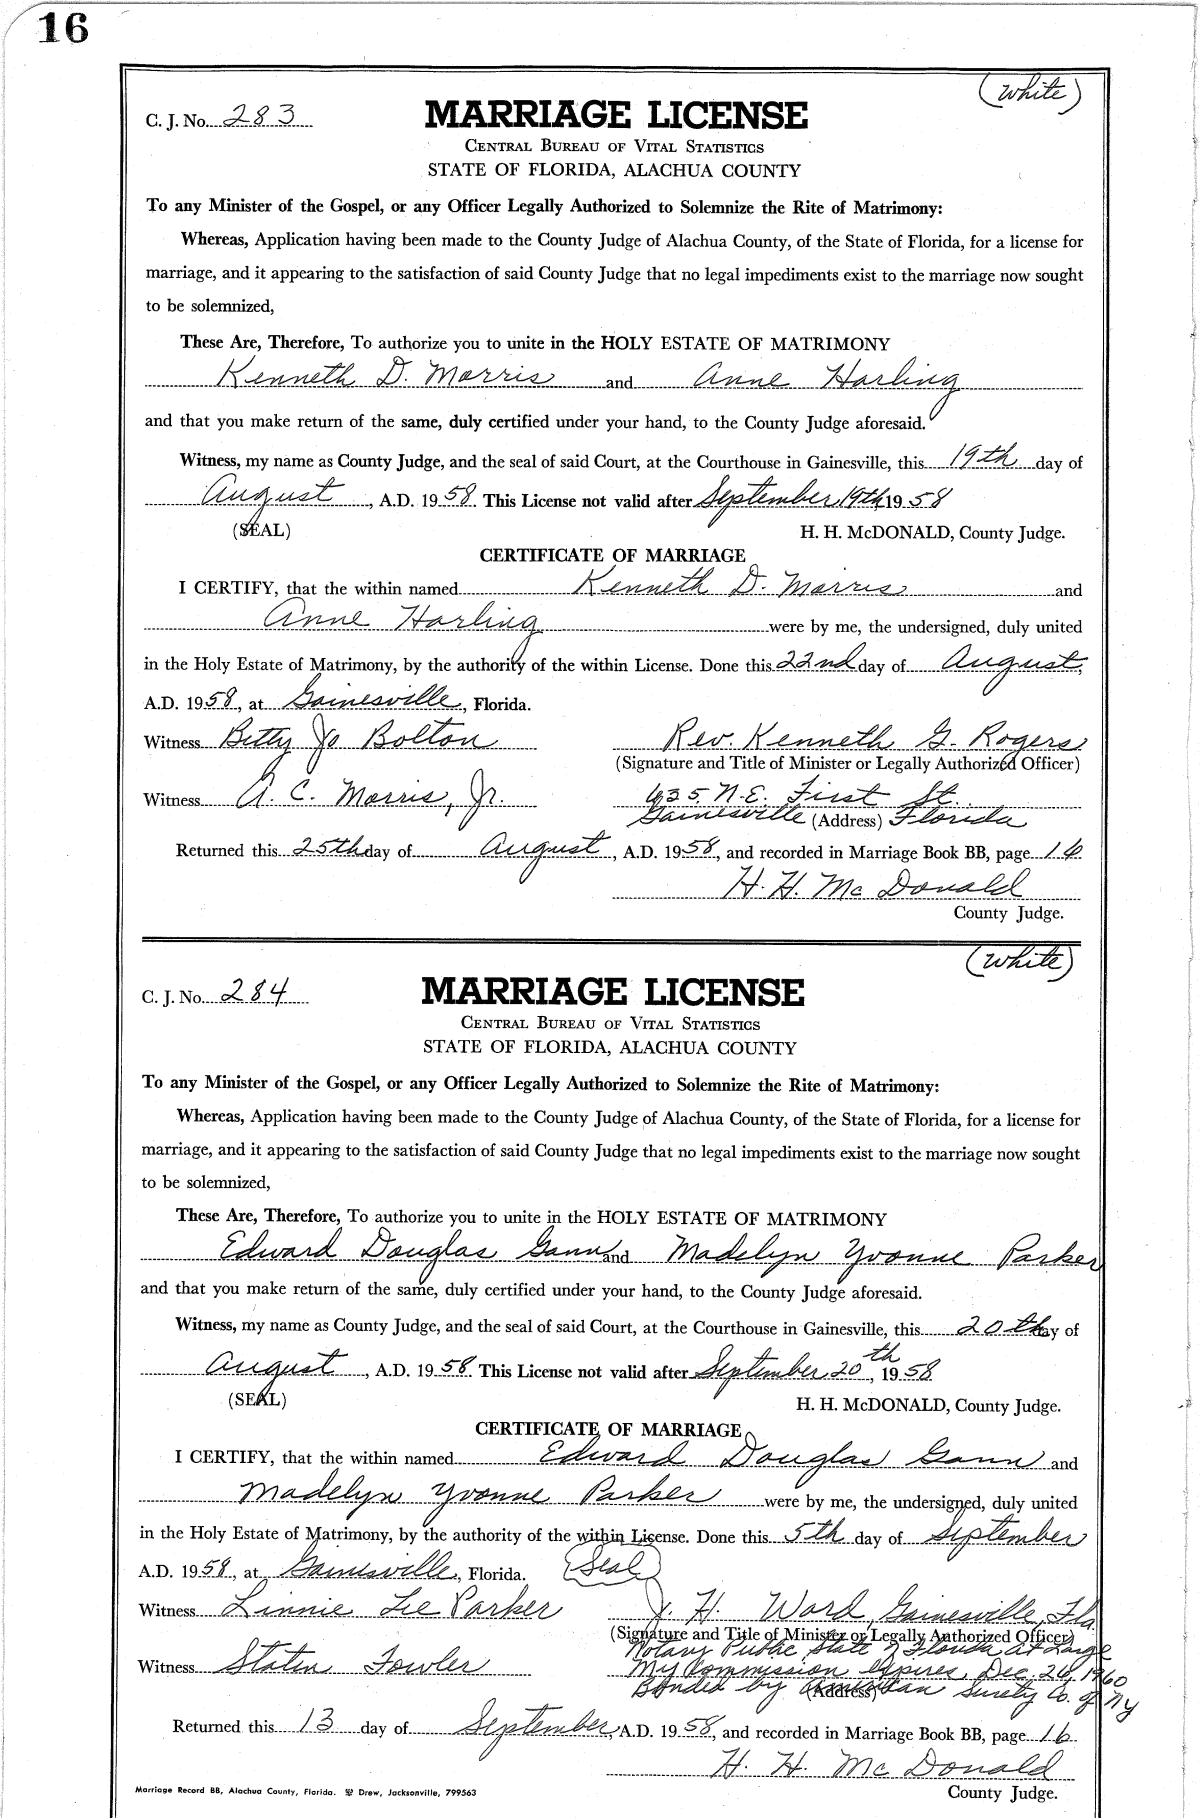 16
(White)
C. J. No. 283
MARRIAGE LICENSE
CENTRAL BUREAU OF VITAL STATISTICS
STATE OF FLORIDA, ALACHUA COUNTY
To any Minister of the Gospel, or any Officer Legally Authorized to Solemnize the Rite of Matrimony:
Whereas, Application having been made to the County Judge of Alachua County, of the State of Florida, for a license for
marriage, and it appearing to the satisfaction of said County Judge that no legal impediments exist to the marriage now sought
to be solemnized,
These Are, Therefore, To authorize you to unite in the HOLY ESTATE OF MATRIMONY
Kenneth D. Morris and Anne Harling
and that you make return of the same, duly certified under your hand, to the County Judge aforesaid.
Witness, my name as County Judge, and the seal of said Court, at the Courthouse in Gainesville, this 19th day of
August, A.D. 1958. This License not valid after September 19th, 1958
(SEAL) H. H. McDONALD, County Judge.
CERTIFICATE OF MARRIAGE
I CERTIFY, that the within named Kenneth D. Morris and
Anne Harling were by me, the undersigned, duly united
in the Holy Estate of Matrimony, by the authority of the within License. Done this 22nd day of August,
A.D. 1958, at Gainesville, Florida.
Witness Betty Jo Bolton Rev. Kenneth G. Rogers
(Signature and Title of Minister or Legally Authorized Officer)
Witness A. C. Morris, Jr. 635 N.E. First St.
Gainesville (Address) Florida
Returned this 25th day of August, A.D. 1958, and recorded in Marriage Book BB, page 16
H. H. McDonald
County Judge.
(White)
C. J. No. 284
MARRIAGE LICENSE
CENTRAL BUREAU OF VITAL STATISTICS
STATE OF FLORIDA, ALACHUA COUNTY
To any Minister of the Gospel, or any Officer Legally Authorized to Solemnize the Rite of Matrimony:
Whereas, Application having been made to the County Judge of Alachua County, of the State of Florida, for a license for
marriage, and it appearing to the satisfaction of said County Judge that no legal impediments exist to the marriage now sought
to be solemnized,
These Are, Therefore, To authorize you to unite in the HOLY ESTATE OF MATRIMONY
Edward Douglas Gann and Madelyn Yvonne Parker
and that you make return of the same, duly certified under your hand, to the County Judge aforesaid.
Witness, my name as County Judge, and the seal of said Court, at the Courthouse in Gainesville, this 20th day of
August, A.D. 1958. This License not valid after September 20th, 1958
(SEAL) H. H. McDONALD, County Judge.
CERTIFICATE OF MARRIAGE
I CERTIFY, that the within named Edward Douglas Gann and
Madelyn Yvonne Parker were by me, the undersigned, duly united
in the Holy Estate of Matrimony, by the authority of the within License. Done this 5th day of September
A.D. 1958, at Gainesville, Florida. (Seal)
Witness Linnie Lee Parker J. H. Ward, Gainesville, Fla.
(Signature and Title of Minister or Legally Authorized Officer)
Notary Public, State of Florida at Large
Witness Staten Fowler My Commission Expires Dec. 26, 1960
Bonded by American Surety Co. of NY
(Address)
Returned this 13 day of September, A.D. 1958, and recorded in Marriage Book BB, page 16
H. H. McDonald
County Judge.
Marriage Record BB, Alachua County, Florida. Drew, Jacksonville, 799563